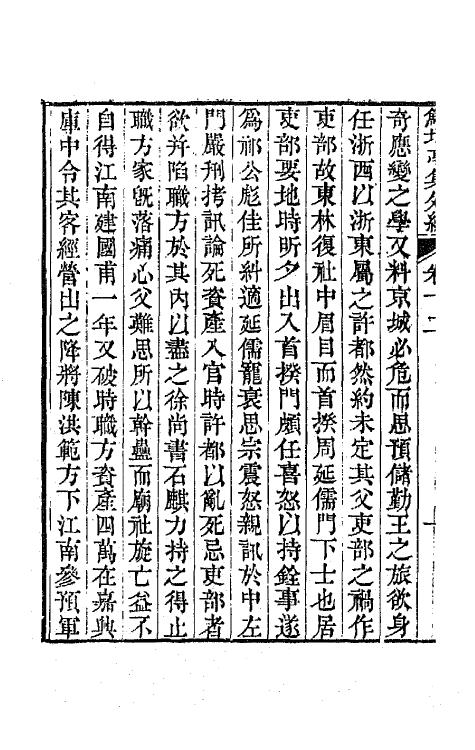 卷十二
奇應變之學又料京城必危而思預儲勤王之旅欲身
任浙西以浙東屬之許都然約未定其父吏部之禍作
吏部故東林復社中眉目而首揆周延儒門下士也居
吏部要地時昕夕出入首揆門頗任喜怒以持銓事遂
爲祁公彪佳所糾適延儒寵衰思宗震怒親訊於中左
門嚴刑拷訊論死資產入官時許都以亂死忌吏部者
欲并陷職方於其內以盡之徐尚書石麒力持之得止
職方家旣落痛心父難思所以幹蠱而廟社旋亡益不
自得江南建國甫一年又破時職方資產四萬在嘉興
庫中令其客經營出之降將陳洪範方下江南參預軍